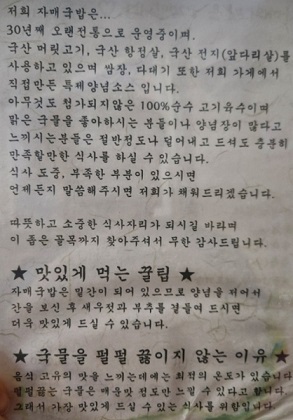 저희 자매국밥은...
30년째 오랜전통으로 운영중이며.
국산 머릿고기, 국산 항정살, 국산 전지(앞다리살)를
사용하고 있으며 쌈장, 다대기 또한 저희 가게에서
직접만든 특제양념소스 입니다.
아무것도 첨가되지않은 100%순수 고기육수이며
맑은 국물을 좋아하시는 분들이나 양념장이 많다고
느끼시는분들은 절반정도 덜어내고 드셔도 충분히
만족할만한 식사를 하실 수 있습니다.
식사 도중, 부족한 부분이 있으시면
언제든지 말씀해주시면 저희가 채워드리겠습니다.
따뜻하고 소중한 식사자리가 되시길 바라며
이 좁은 골목까지 찾아주셔서 무한 감사드립니다.
★ 맛있게 먹는 꿀팁 ★
자매국밥은 밑간이 되어 있으므로양념을 저어서
간을 보신 후 새우젓과 부추를 곁들여 드시면
더욱 맛있게 드실 수 있습니다.
★ 국물을 펄펄 끓이지 않는 이유 ★
음식 고유의 맛을 느끼는데에는 최적의 온도가 있습니다
펄펄끓는 국물은 매운맛 정도만 느낄 수 있다고 합니다.
그래서 가장 맛있게 드실 수 있는 식사를 위함입니다.